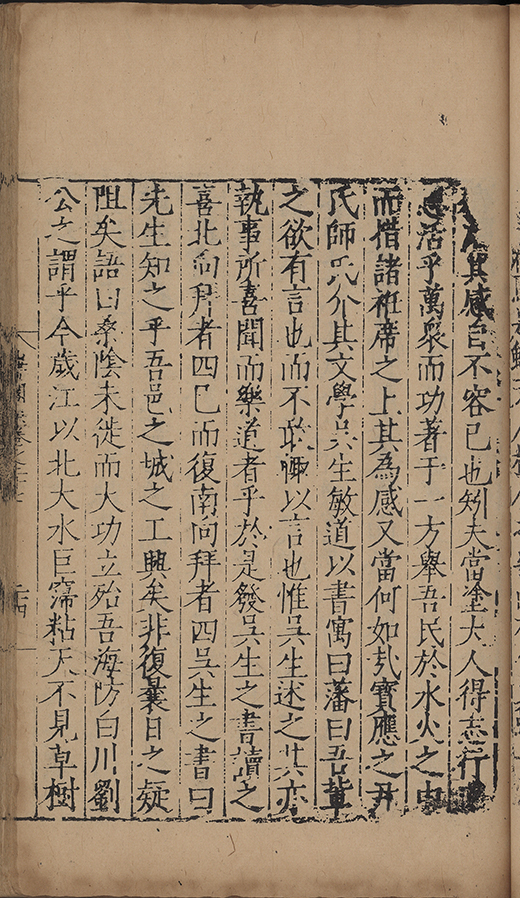 其感自不容已也矧夫當塗大人得志行
活乎萬衆而功著于一方舉吾民於水火之中
而措諸袵席之上其為感又當何如㢤寳應之尹
氏師氏介其文學吳生敏道以書寓曰藩曰吾輩
之欲有言也而不敢輒以言也惟吳生述之其亦
執事所喜聞而樂道者乎於是發吳生之書讀之
喜北向拜者四已而復南向拜者四吳生之書曰
先生知之乎吾邑之城之工興矣非復曩日之疑
阻矣語曰桑陰未徙而大功立殆吾海防白川劉
公之謂乎今歲江以北大水巨霈粘天不見草樹